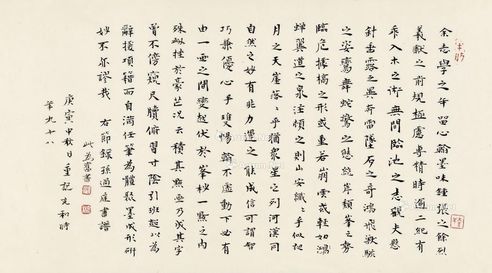 余志學之年留心翰墨味鍾張之餘烈
羲獻之前規極慮專精時逾二紀有
乖入木之術無間臨池之志觀夫懸
針垂露之異奔雷墜石之奇鴻飛獸駭
之姿鸞舞蛇驚之態絕岸頹峯之勢
臨危據槁之形或重若崩雲或輕如
蟬翼導之泉注頓之則山安纖纖乎似初
月之天崖落落乎猶眾星之列河漢同
自然之妙有非力運之能成信可謂智
巧兼優心手雙暢翰不虛動下必有
由一畫之間變起伏於峯杪一點之內
殊衄挫於豪芒況云積其點畫乃成其字
曾不傍窺尺牘俯習寸陰引班超以為
辭援項籍而自滿任筆為體聚墨成形妍
妙不亦謬哉 右節錄孫過庭書譜
庚寅中秋日
年九十八